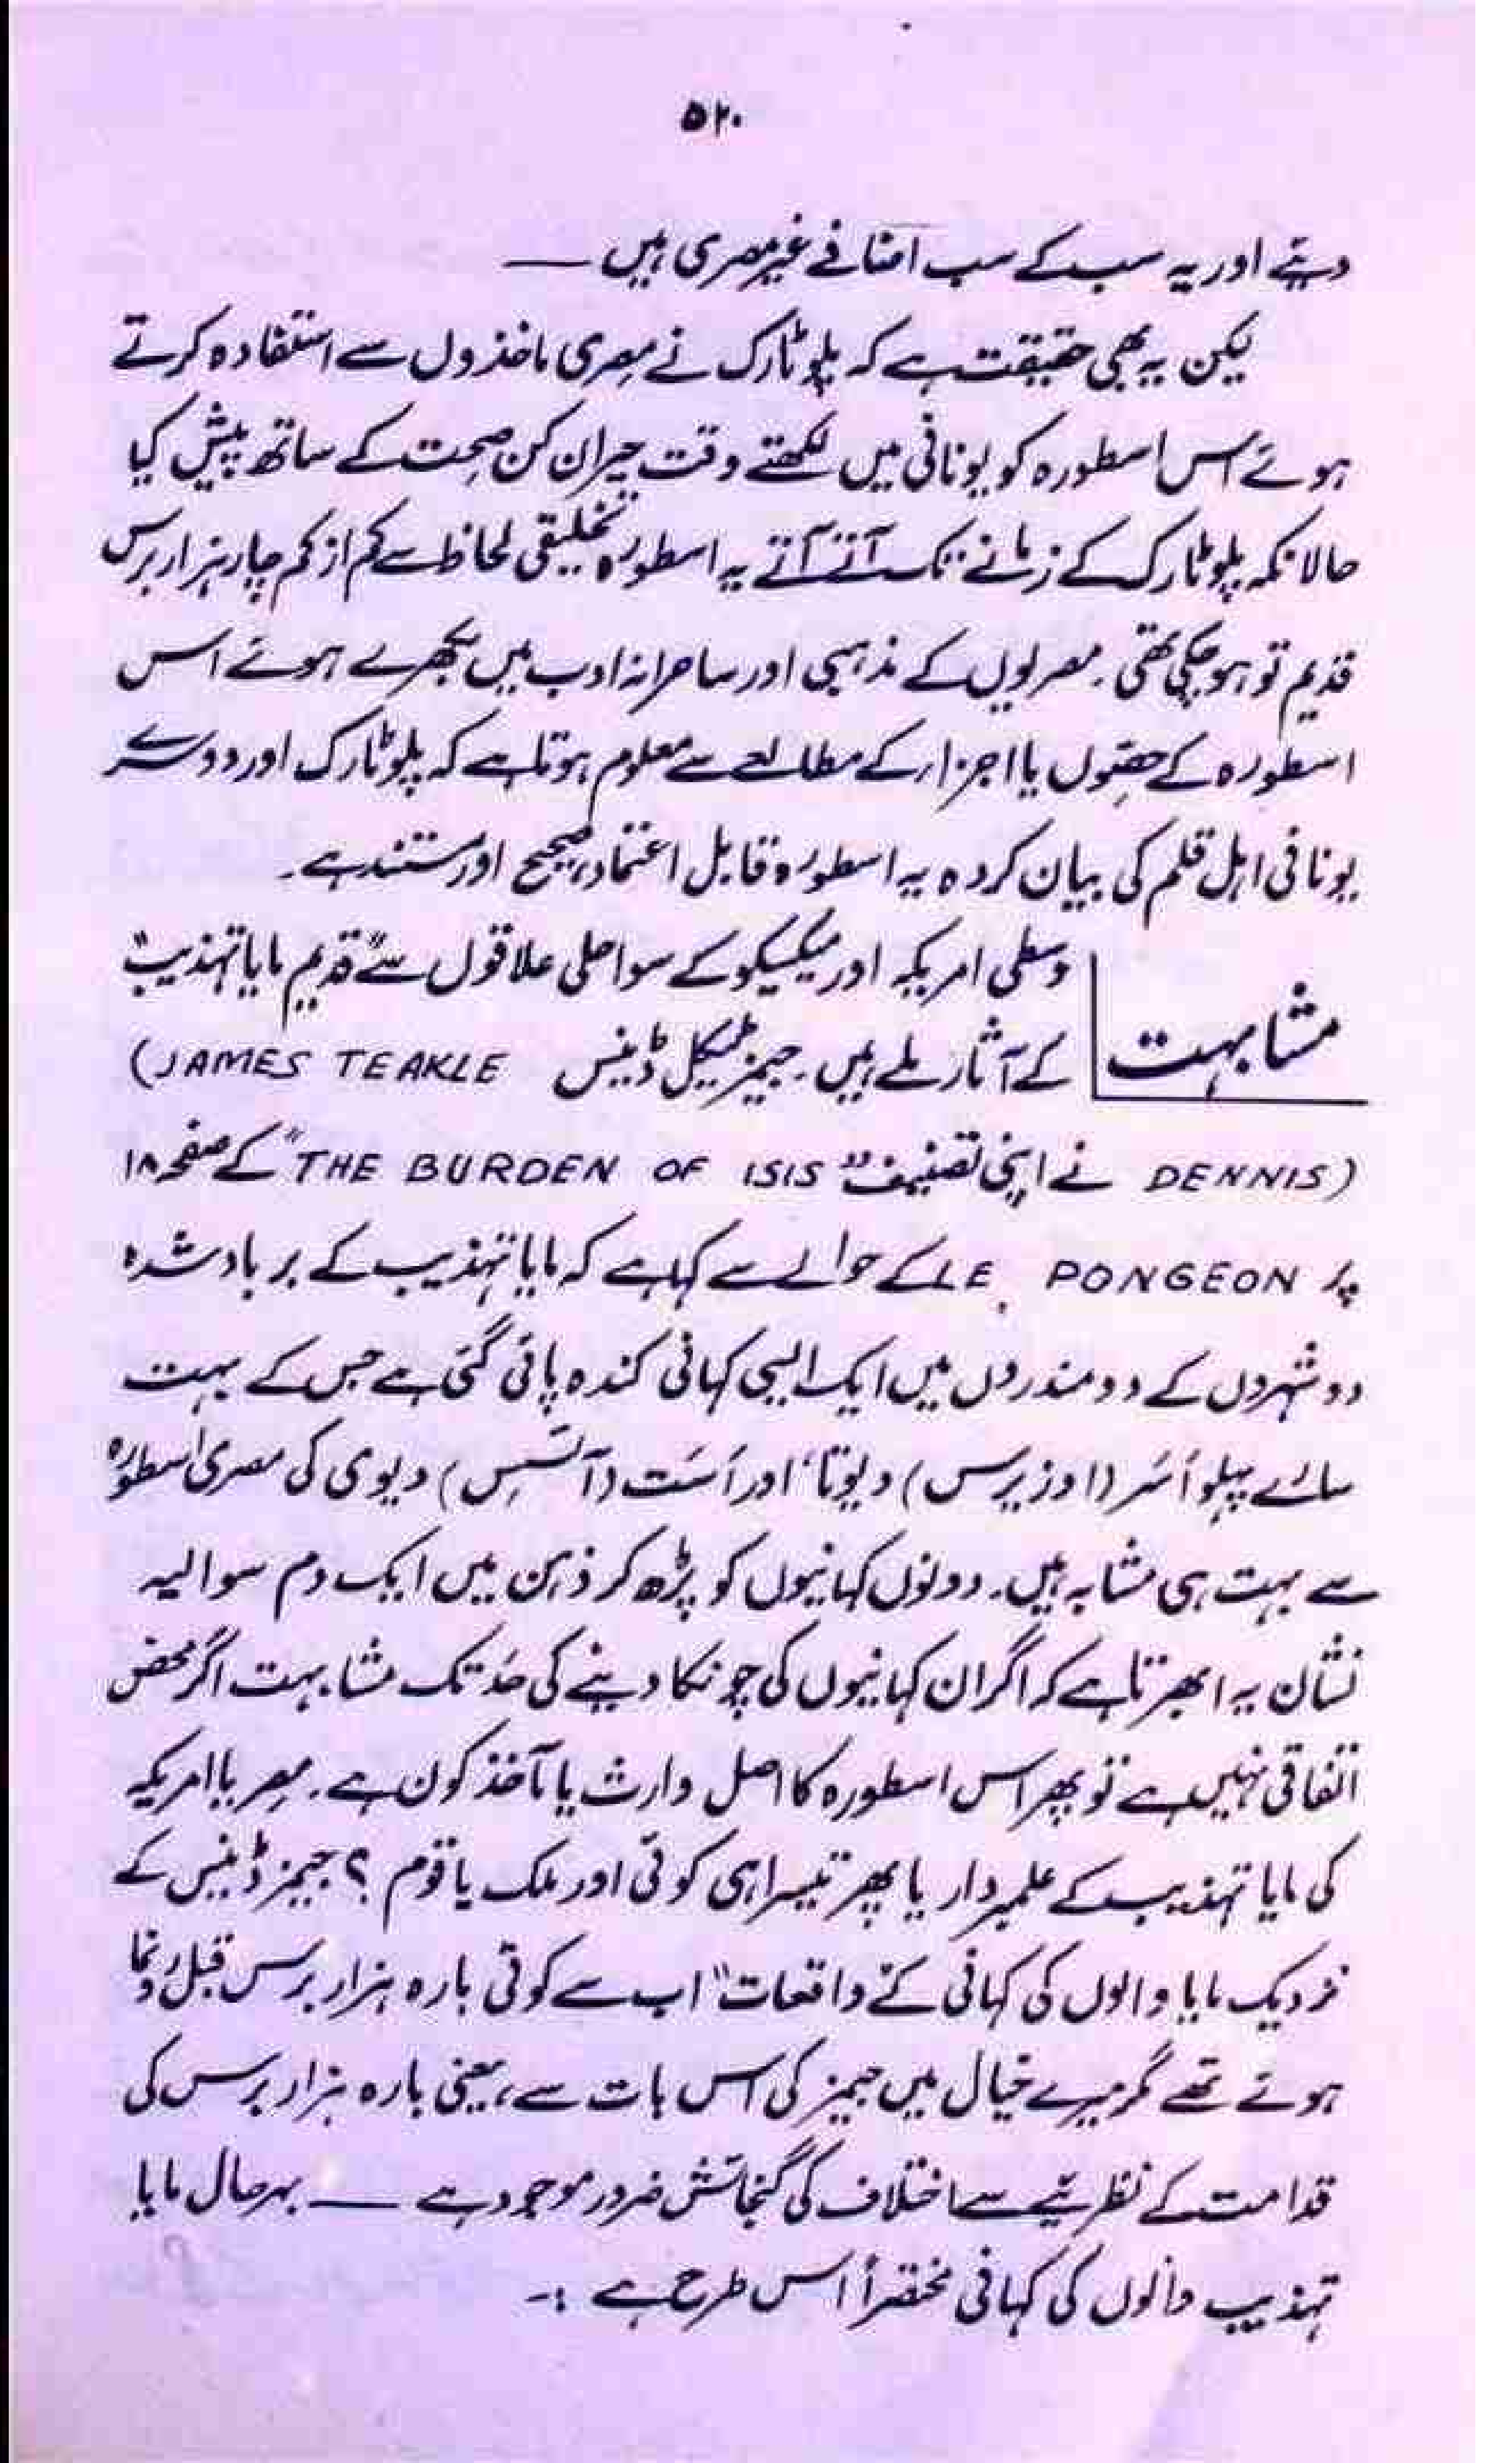 ۵۲۰
دیئے اور یہ سب کے سب اضافے غیر مصری ہیں ـــــ
لیکن یہ بھی حقیقت ہے کہ پلوٹارک نے مصری ماخذوں سے استفادہ کرتے
ہوئے اس اسطورہ کو یونانی میں لکھتے وقت حیران کن صحت کے ساتھ پیش کیا
حالانکہ پلوٹارک کے زمانے تک آتے آتے یہ اسطورہ تخلیقی لحاظ سے کم از کم چار ہزار برس
قدیم تو ہو چکی تھی۔ مصریوں کے مذہبی اور ساحرانہ ادب میں بکھرے ہوئے اس
اسطورہ کے حصّوں یا اجزاء کے مطالعے سے معلوم ہوتا ہے کہ پلوٹارک اور دوسرے
یونانی اہل قلم کی بیان کردہ یہ اسطورہ قابل اعتماد، صحیح اور مستند ہے۔
مشابہت
وسطی امریکہ اور میکسیکو کے سواحلی علاقوں سے "قدیم مایا تہذیب"
کے آثار ملے ہیں۔ جیمز ٹیکل ڈینس (JAMES TEAKLE
DENNIS) نے اپنی تصنیف "THE BURDEN OF ISIS" کے صفحہ ۱۸
پر LE PONGEON کے حوالے سے کہا ہے کہ مایا تہذیب کے برباد شدہ
دو شہروں کے دو مندروں میں ایک ایسی کہانی کندہ پائی گئی ہے جس کے بہت
سارے پہلو اُسَر (اوزیرس) دیوتا، اور اَسَت (آئسِس) دیوی کی مصری اسطورہ
سے بہت ہی مشابہ ہیں۔ دونوں کہانیوں کو پڑھ کر ذہن میں ایک دم سوالیہ
نشان یہ ابھرتا ہے کہ اگر ان کہانیوں کی چونکا دینے کی حد تک مشابہت اگر محض
اتفاقی نہیں ہے تو پھر اس اسطورہ کا اصل وارث یا مآخذ کون ہے۔ مصر یا امریکہ
کی مایا تہذیب کے علمبردار یا پھر تیسرا ہی کوئی اور ملک یا قوم ؟ جیمز ڈینس کے
نزدیک مایا والوں کی کہانی کے واقعات" اب سے کوئی بارہ ہزار برس قبل رونما
ہوئے تھے مگر میرے خیال میں جیمز کی اس بات سے، یعنی بارہ ہزار برس کی
قدامت کے نظریئے سے اختلاف کی گنجائش ضرور موجود ہے ـــــ بہرحال مایا
تہذیب والوں کی کہانی مختصراً اس طرح ہے :۔